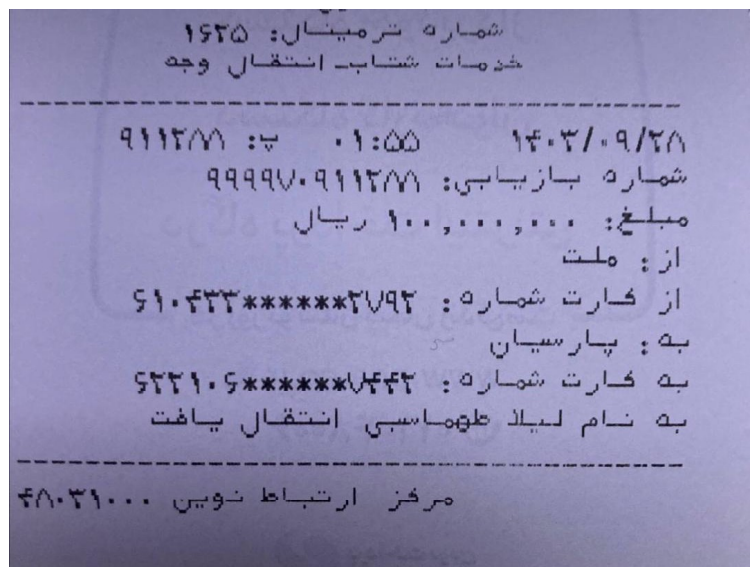 شماره ترمینال: ۱۶۲۵
خدمات شتاب_ انتقال وجه
۱۴۰۳/۰۹/۲۸ ۰۱:۵۵ پ: ۹۱۱۲۸۸
شماره بازیابی: ۹۹۹۹۷۰۹۱۱۲۸۸
مبلغ: ۱۰۰,۰۰۰,۰۰۰ ریال
از: ملت
از کارت شماره: ۶۱۰۴۳۳******۲۷۹۲
به: پارسیان
به کارت شماره: ۶۲۲۱۰۶******۷۴۴۲
به نام لیلا طهماسبی انتقال یافت
مرکز ارتباط نوین ۴۸۰۳۱۰۰۰